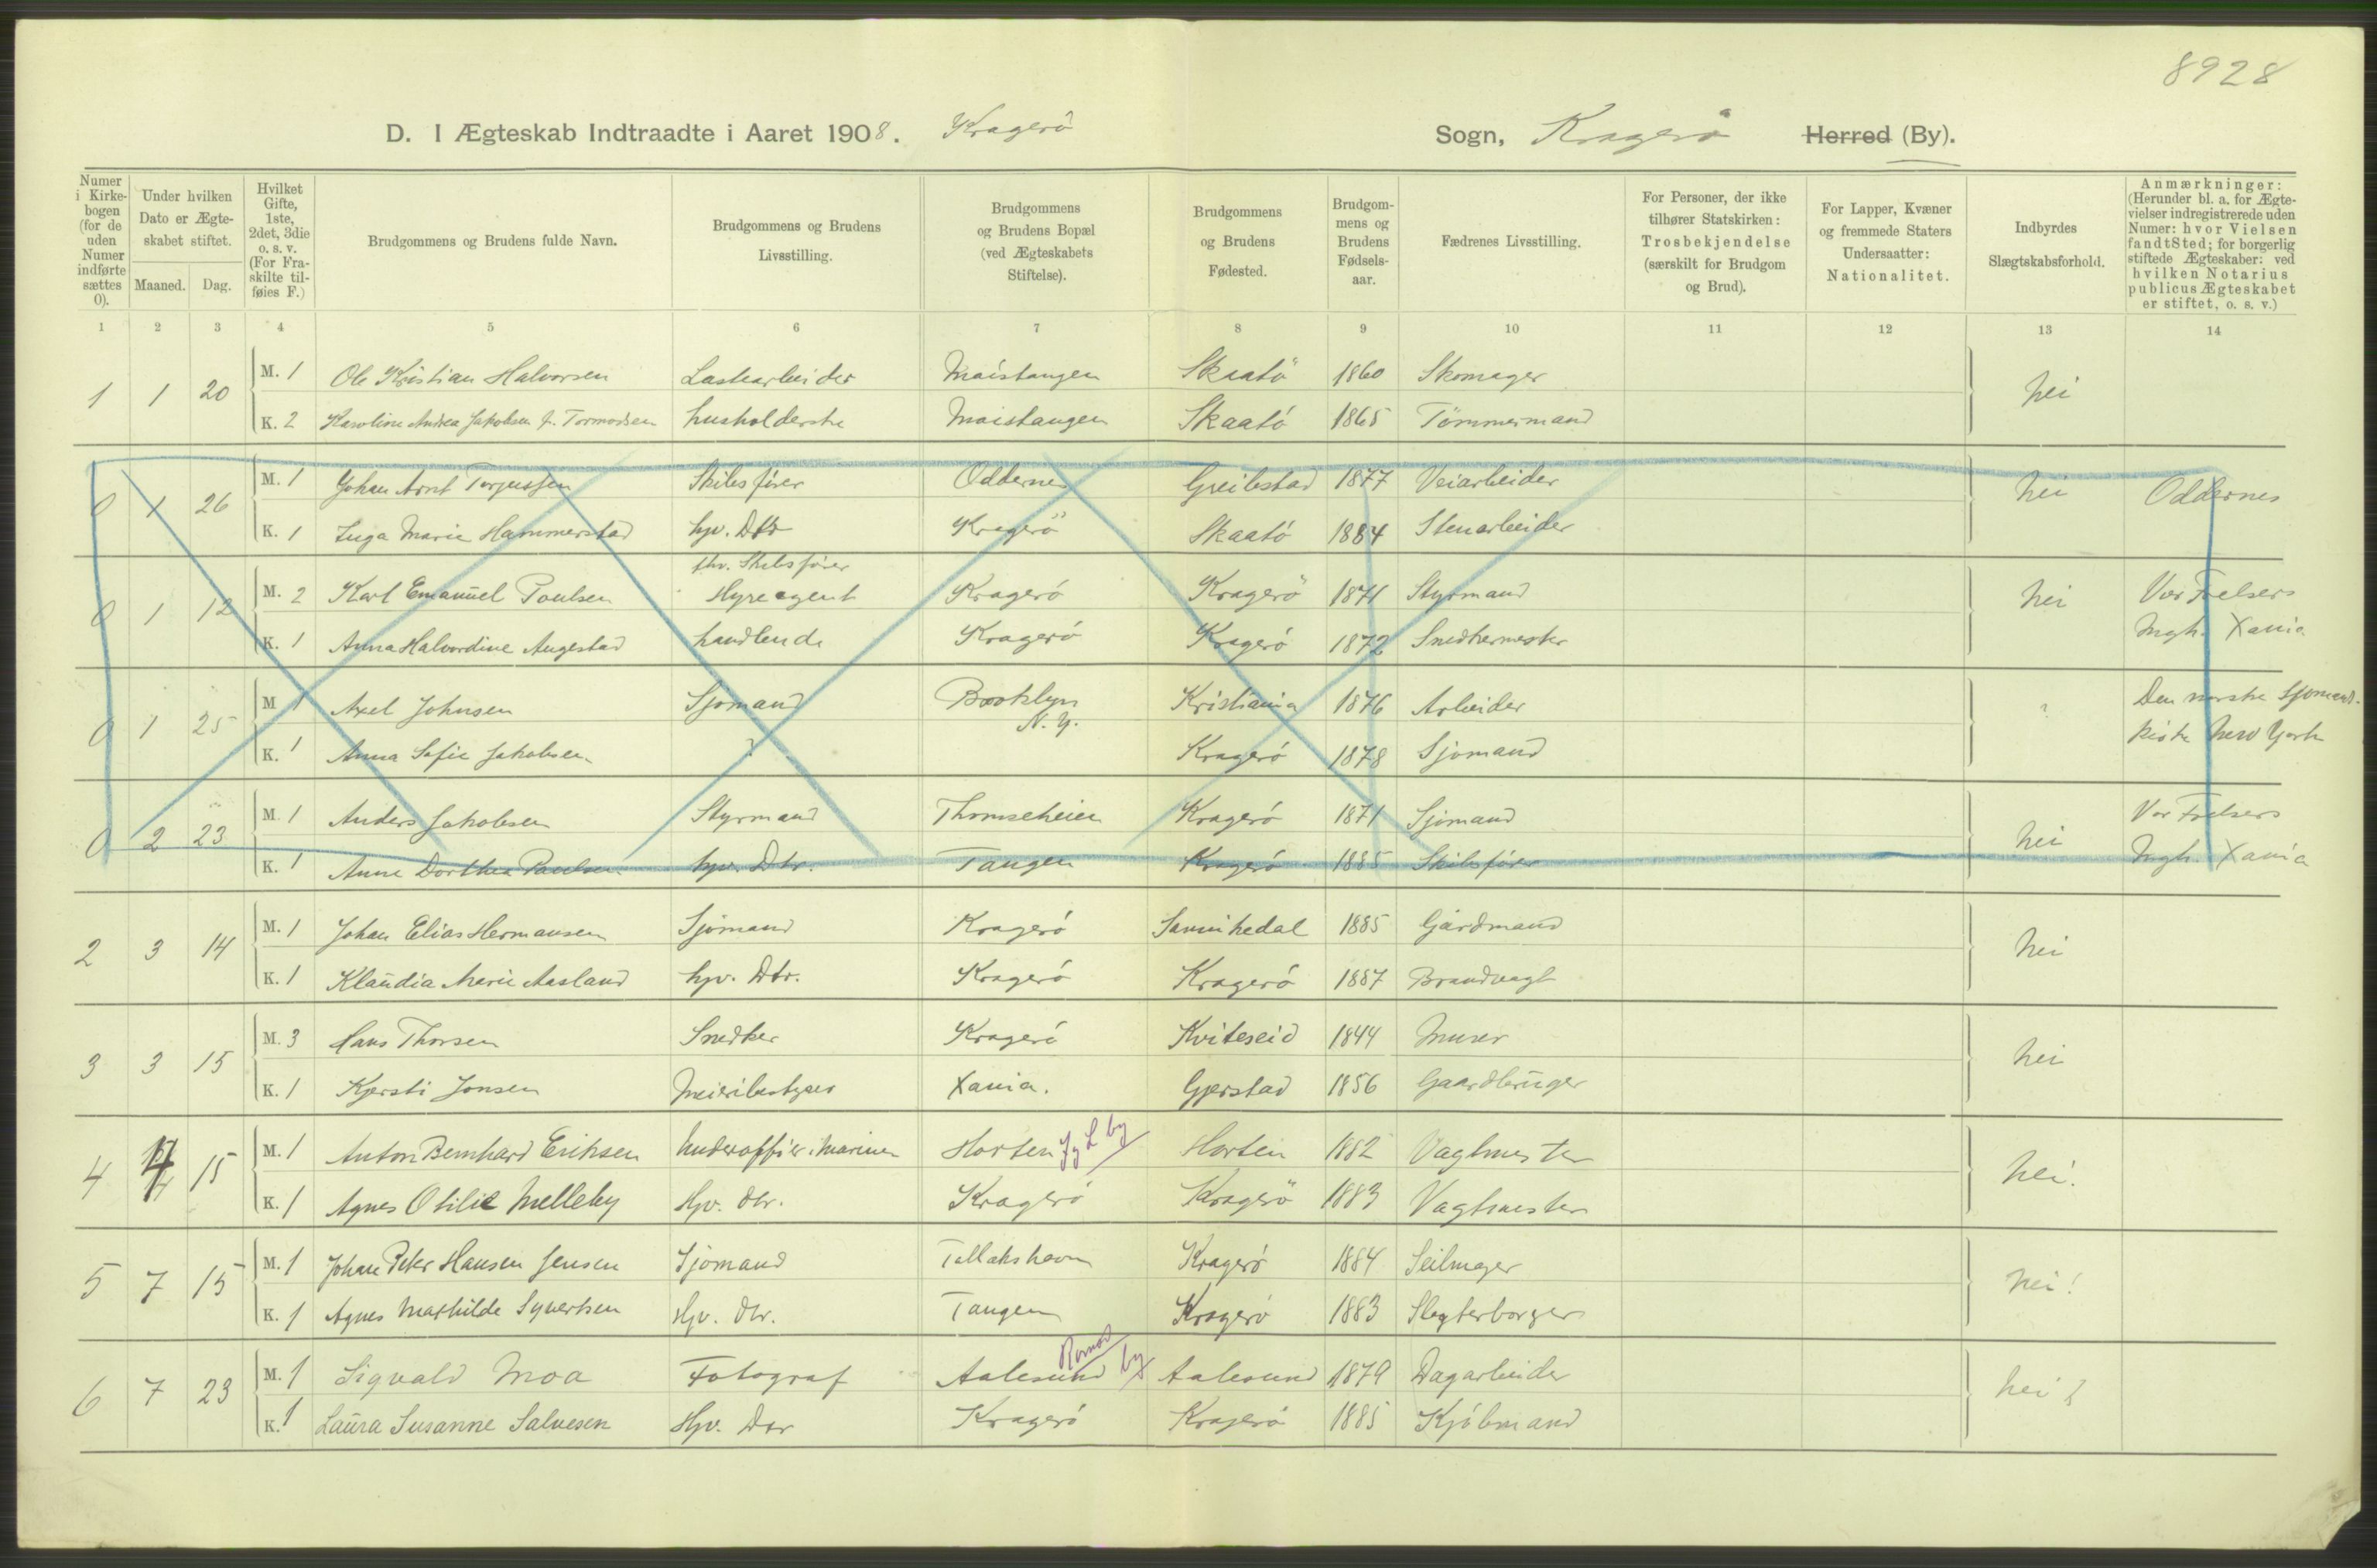 8928
D. I Ægteskab Indtraadte i Aaret 1908. Kragerö Sogn, Kragerö Herred (By).
Numer i Kirkebogen (for de uden Numer indførte sættes 0).
Under hvilken Dato er Ægteskabet stiftet.
Maaned. Dag.
Hvilket Gifte, 1ste, 2det, 3die o. s. v. (For Fraskilte tilføies F.)
Brudgommens og Brudens fulde Navn.
Brudgommens og Brudens Livsstilling.
Brudgommens og Brudens Bopæl (ved Ægteskabets Stiftelse).
Brudgommens og Brudens Fødested.
Brudgommens og Brudens Fødselsaar.
Fædrenes Livsstilling.
For Personer, der ikke tilhører Statskirken: Trosbekjendelse (særskilt for Brudgom og Brud).
For Lapper, Kvæner og fremmede Staters Undersaatter: Nationalitet.
Indbyrdes Slægtskabsforhold.
Anmærkninger: (Herunder bl. a. for Ægtevielser indregistrerede uden Numer: hvor Vielsen fandt Sted; for borgerlig stiftede Ægteskaber: ved hvilken Notarius publicus Ægteskabet er stiftet, o. s. v.)
1 2 3 4 5 6 7 8 9 10 11 12 13 14
1 1 20 M. 1 Ole Kristian Halvorsen Lastearbeider Maistangen Skaatö 1860 Skomager nei
K. 2 Karoline Andrea Jakobsen f. Tormodsen husholderske Maistangen Skaatö 1865 Tömmermand
0 1 26 M. 1 Johan Arnt Torjussen Skibsfører Oddernes Greibstad 1877 Veiarbeider nei Oddernes
K. 1 Inga Marie Hammerstad hjv. Dtr Kragerö Skaatö 1884 Stenarbeider
fhv. Skibsfører
0 1 12 M. 2 Karl Emanuel Poulsen Hyreagent Kragerö Kragerö 1871 Styrmand nei Vor Frelsers
K. 1 Anna Halvordine Augestad handlende Kragerö Kragerö 1872 Snedkermester Mgh. Xania
0 1 25 M 1 Axel Johnsen Sjömand Brooklyn N. Y. Kristiania 1876 Arbeider ? Den norske Sjömands-
K. 1 Anna Sofie Jakobsen ? Kragerö 1878 Sjömand kirke New York
0 2 23 M. 1 Anders Jakobsen Styrmand Thomseheien Kragerö 1871 Sjömand nei Vor Frelsers
K. 1 Anne Dorthea Paulsen hjv. Dtr. Tangen Kragerö 1885 Skibsfører Mgh. Xania
2 3 14 M. 1 Johan Elias Hermansen Sjömand Kragerö Sannikedal 1885 Gårdmand nei
K. 1 Klaudia Marie Aasland hjv. Dtr. Kragerö Kragerö 1887 Brandvagt
3 3 15 M. 3 Hans Thorsen Snedker Kragerö Kviteseid 1844 Murer nei
K. 1 Kjersti Jonsen Meieribestyrer Xania. Gjerstad 1856 Gaardbruger
4 4 15 M. 1 Anton Bernhard Eriksen Underoffisier i Marinen Horten by Horten 1882 Vagtmester nei!
K. 1 Agnes Otilie Melleby Hjv. dtr. Kragerö Kragerö 1883 Vagtmester
5 7 15 M. 1 Johan Peter Hansen Jensen Sjömand Tallakshavn Kragerö 1884 Seilmager nei!
K. 1 Agnes Mathilde Syvertsen Hjv. Dtr. Tangen Kragerö 1883 Slagterborger
6 7 23 M. 1 Sigvald Moa Fotograf Aalesund Romsd by Aalesund 1879 Dagarbeider nei
K. 1 Laura Susanne Salvesen Hjv. Dtr Kragerö Kragerö 1885 Kjöbmand